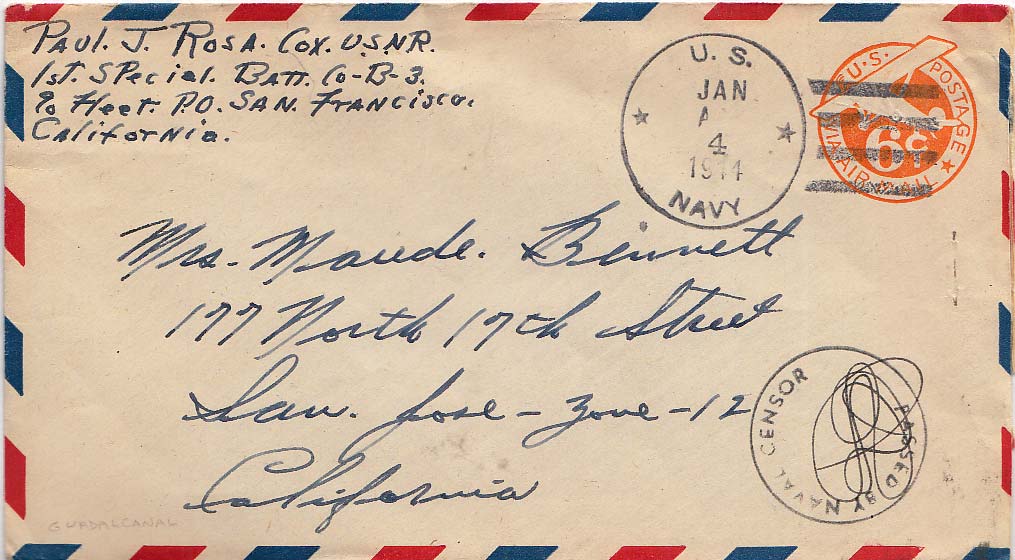 PAUL. J. ROSA. COX. U.S.N.R.
1st. SPecial. BATT. Co-B-3.
% Fleet. P.O. SAN. Francisco.
California.
U. S.
JAN
A
4
1944
NAVY
U.S. POSTAGE
6¢
VIA AIR MAIL
Mrs. Maude. Bennett
177 North 17th Street
San. Jose - Zone - 12
California
PASSED BY NAVAL CENSOR
GUADALCANAL